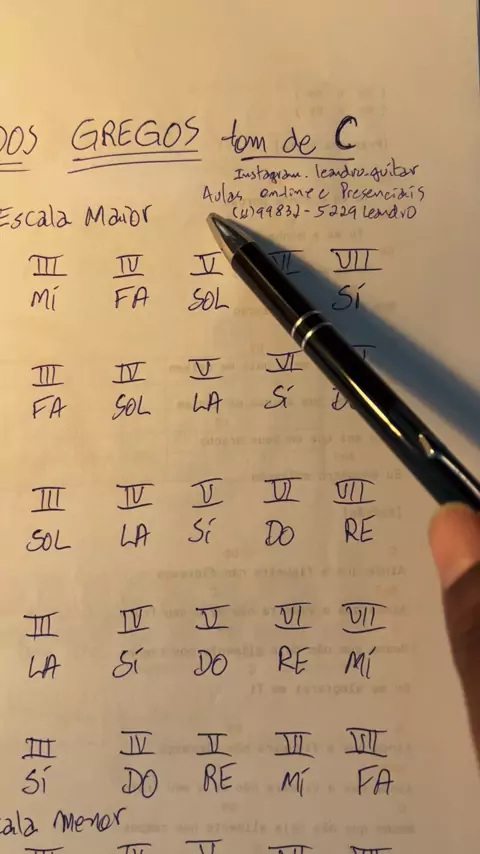 DOS GREGOS tom de C
Instagram. leandro.guitar
Aulas online e Presenciais
Escala Maior (11)99832-5229 Leandro
III IV V VI VII
MÍ FA SOL SÍ
III IV V VI
FA SOL LA SÍ
III IV V VI VII
SOL LA SÍ DO RE
III IV V VI VII
LA SÍ DO RE MÍ
III IV V VI VII
SÍ DO RE MÍ FA
cala Menor